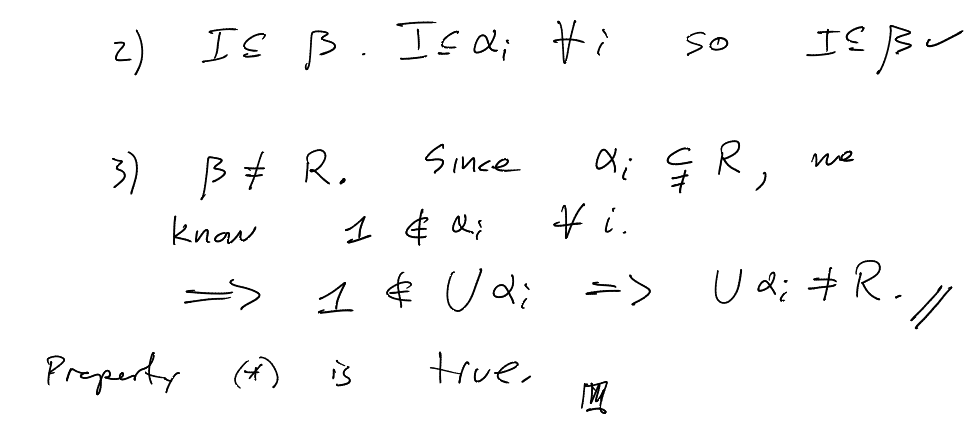 2) I ⊆ β . I ⊆ α_i ∀ i so I ⊆ β ✓
3) β ≠ R. Since α_i ⊊ R, we
know 1 ∉ α_i ∀ i.
=> 1 ∉ ∪ α_i => ∪ α_i ≠ R. //
Property (*) is true.